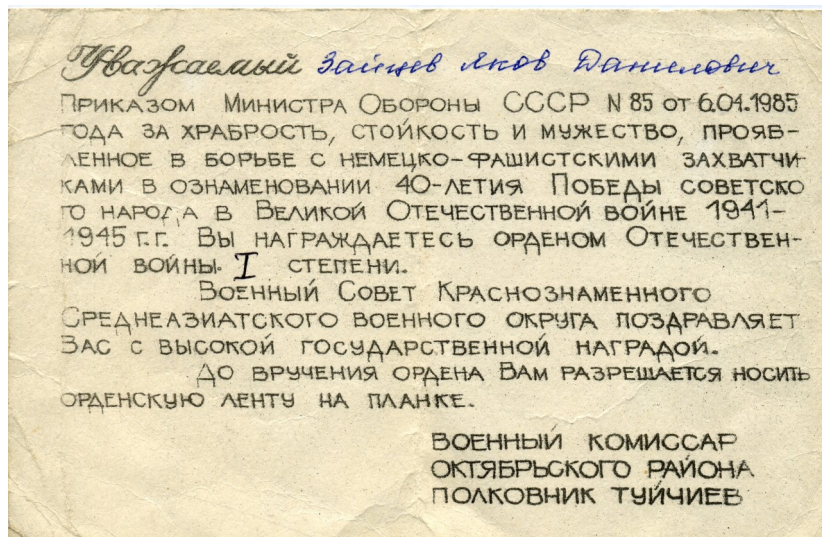 Уважаемый Зайцев Яков Данилович
ПРИКАЗОМ МИНИСТРА ОБОРОНЫ СССР N 85 ОТ 6.04.1985
ГОДА ЗА ХРАБРОСТЬ, СТОЙКОСТЬ И МУЖЕСТВО, ПРОЯВ-
ЛЕННОЕ В БОРЬБЕ С НЕМЕЦКО-ФАШИСТСКИМИ ЗАХВАТЧИ-
КАМИ В ОЗНАМЕНОВАНИИ 40-ЛЕТИЯ ПОБЕДЫ СОВЕТСКО
ГО НАРОДА В ВЕЛИКОЙ ОТЕЧЕСТВЕННОЙ ВОЙНЕ 1941-
1945 Г.Г. ВЫ НАГРАЖДАЕТЕСЬ ОРДЕНОМ ОТЕЧЕСТВЕН-
НОЙ ВОЙНЫ. I СТЕПЕНИ.
ВОЕННЫЙ СОВЕТ КРАСНОЗНАМЕННОГО
СРЕДНЕАЗИАТСКОГО ВОЕННОГО ОКРУГА ПОЗДРАВЛЯЕТ
ВАС С ВЫСОКОЙ ГОСУДАРСТВЕННОЙ НАГРАДОЙ.
ДО ВРУЧЕНИЯ ОРДЕНА ВАМ РАЗРЕШАЕТСЯ НОСИТЬ
ОРДЕНСКУЮ ЛЕНТУ НА ПЛАНКЕ.
ВОЕННЫЙ КОМИССАР
ОКТЯБРЬСКОГО РАЙОНА
ПОЛКОВНИК ТУЙЧИЕВ